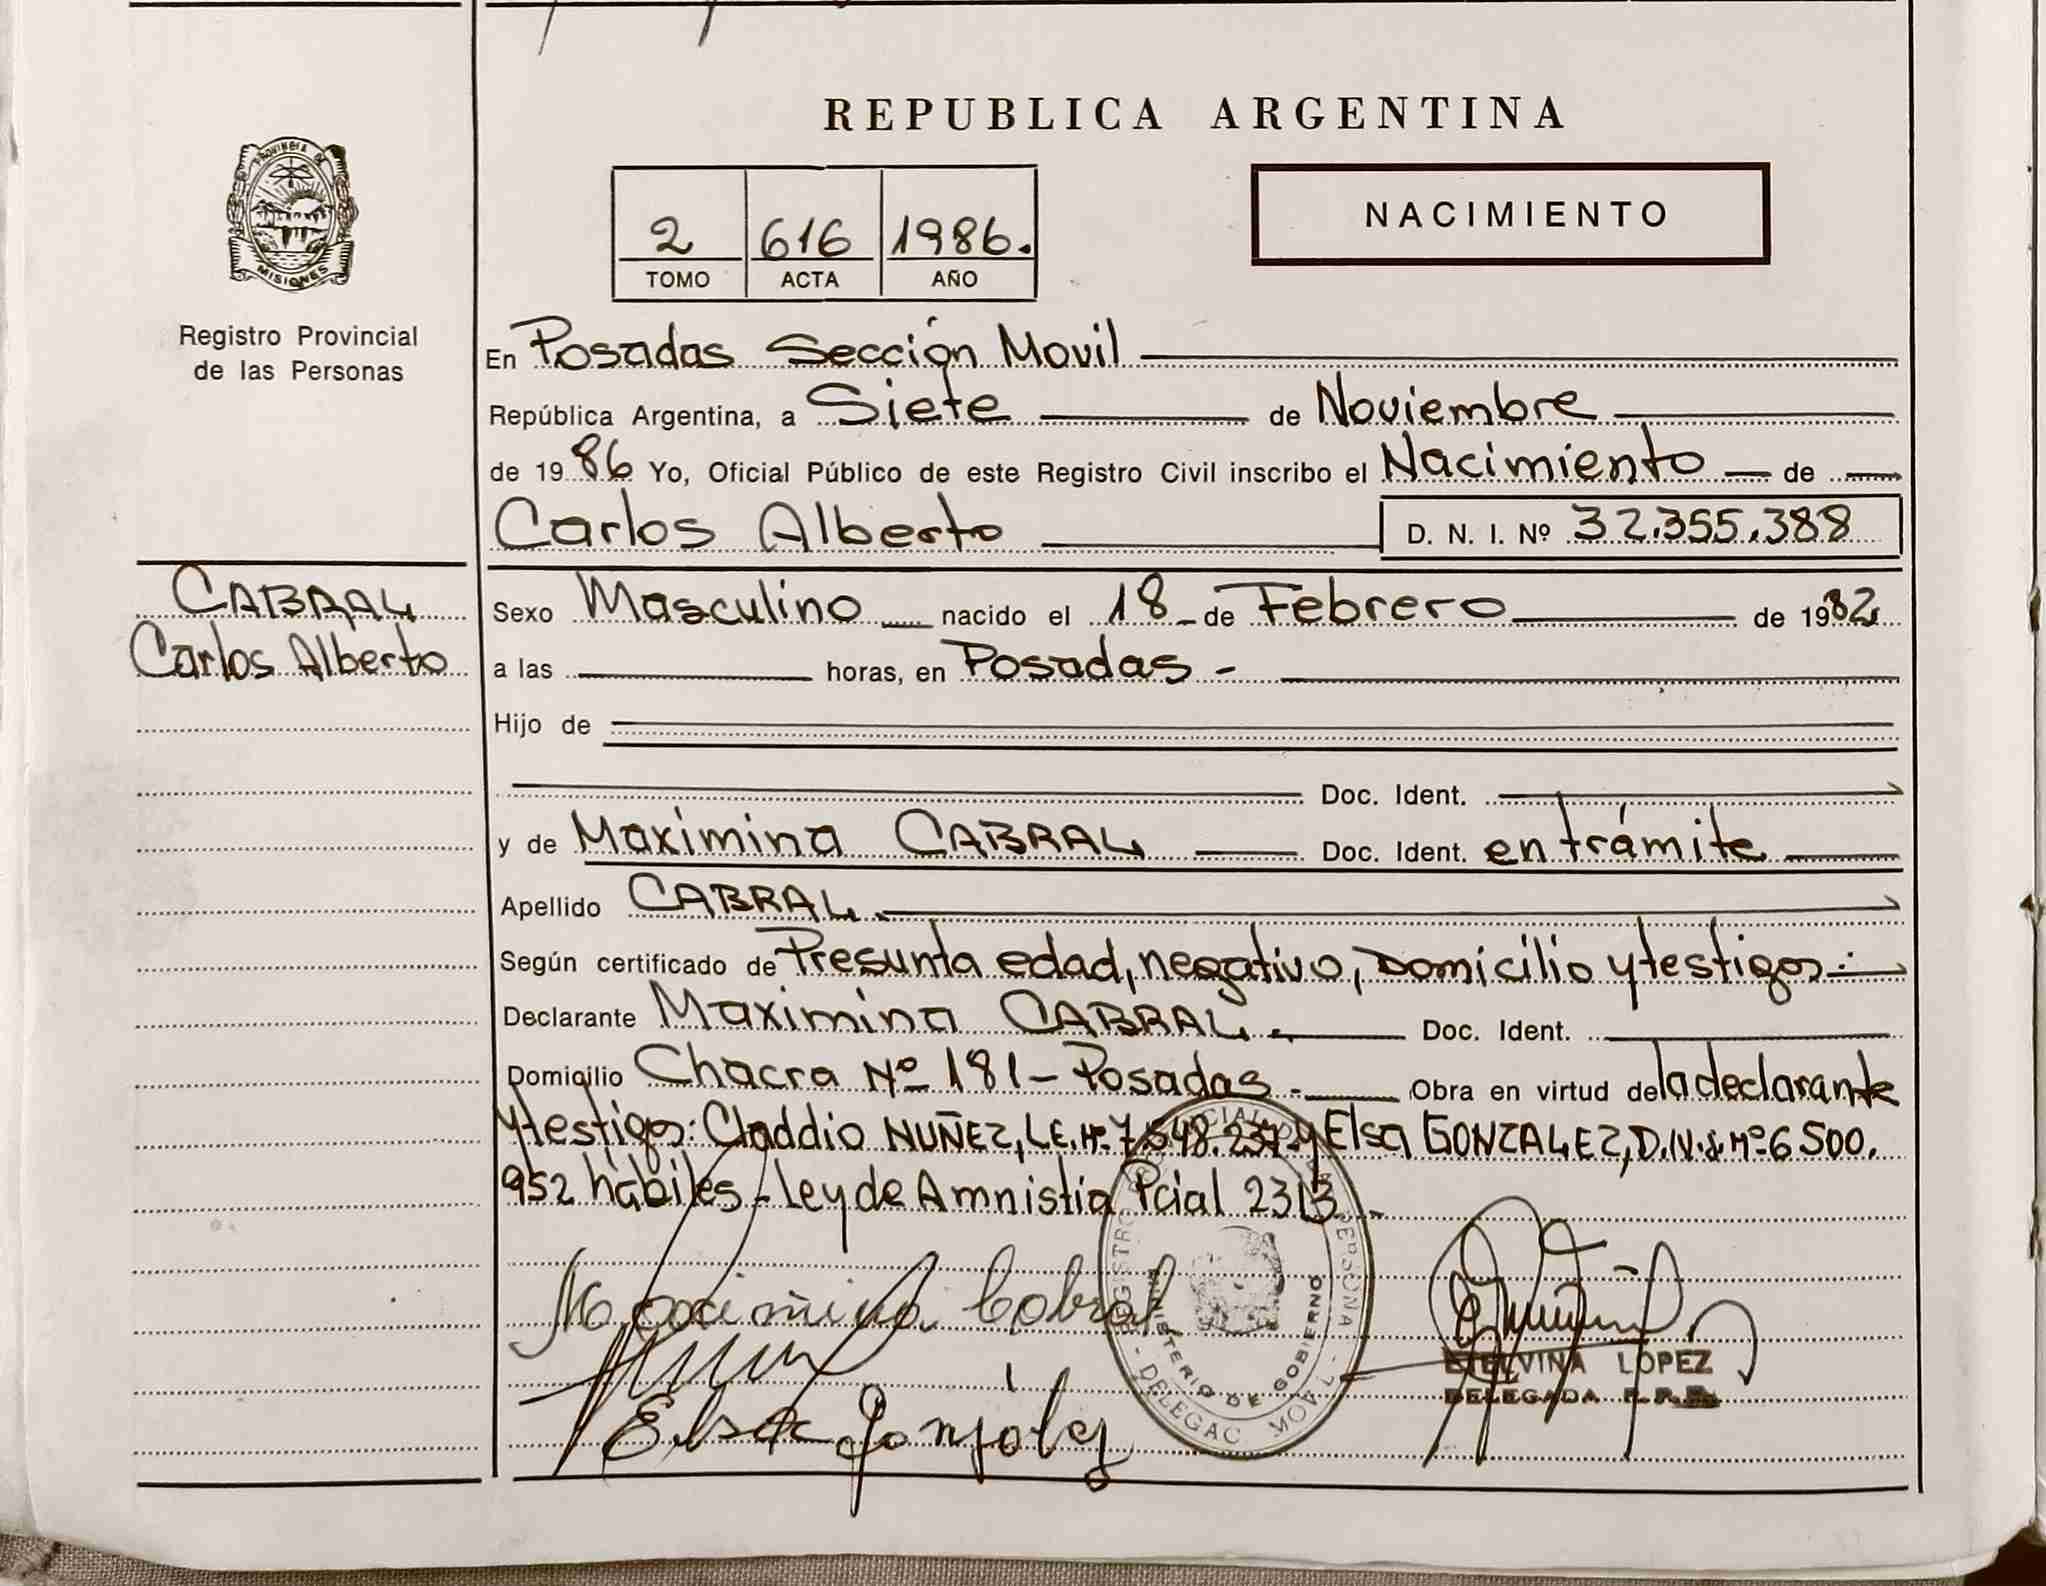 REPUBLICA ARGENTINA
PROVINCIA DE
MISIONES
2 616 1986.
TOMO ACTA AÑO
NACIMIENTO
Registro Provincial
de las Personas
En Posadas Sección Movil
República Argentina, a Siete de Noviembre
de 1986 Yo, Oficial Público de este Registro Civil inscribo el Nacimiento de
Carlos Alberto D. N. I. Nº 32.355.388
CABRAL
Carlos Alberto
Sexo Masculino nacido el 18 de Febrero de 1982
a las horas, en Posadas -
Hijo de
Doc. Ident.
y de Maximina CABRAL Doc. Ident. en trámite
Apellido CABRAL.
Según certificado de Presunta edad, negativo, Domicilio y testigos:
Declarante Maximina CABRAL. Doc. Ident.
Domicilio Chacra Nº 181 - Posadas - Obra en virtud de la declarante
y testigos: Claddio NUÑEZ, L.E. Nº 7.548.237 y Elsa GONZALEZ, D.N.I. Nº 6500.
952 hábiles - Ley de Amnistia Pcial 2313.-
Maximina Cabral
Elsa Gonzalez
MINISTERIO DE GOBIERNO
DELEGAC. MOVIL
ETELVINA LOPEZ
DELEGADA R.P.P.